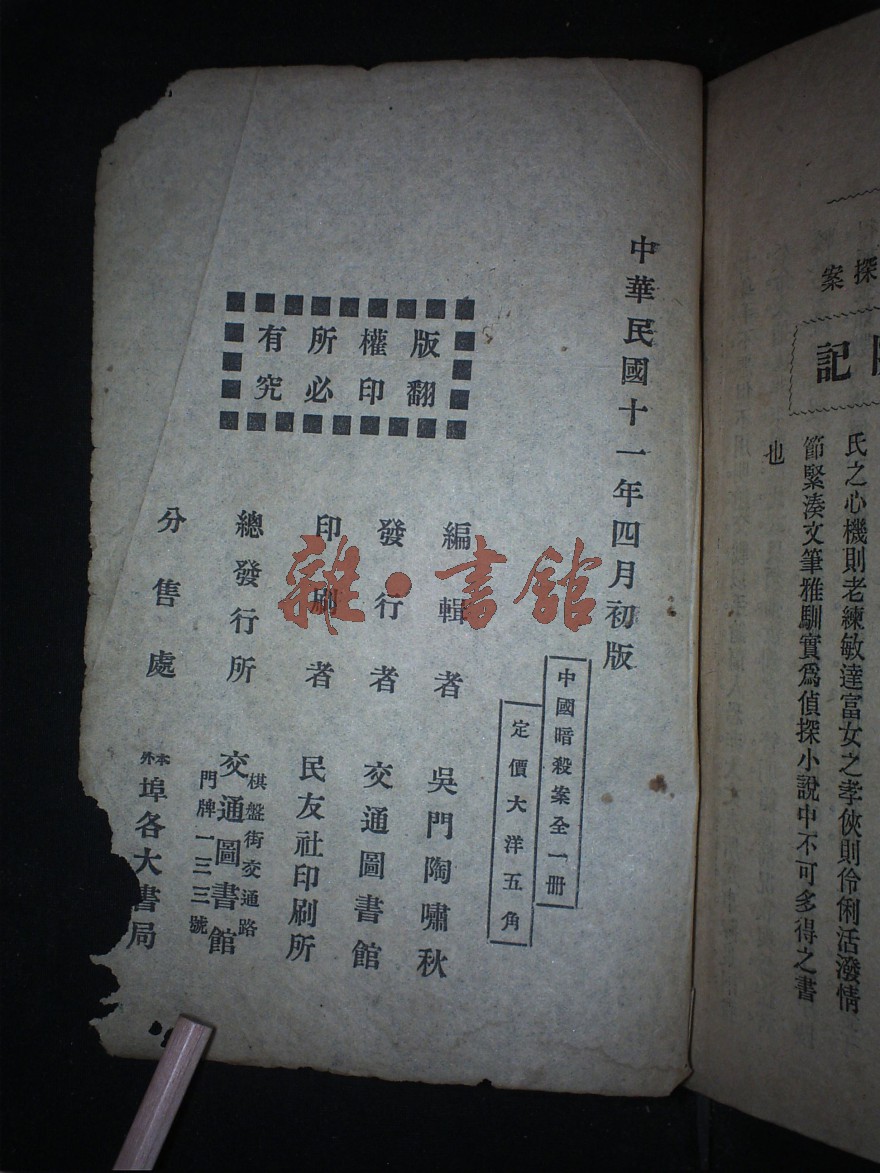 探案
記
氏之心機則老練敏達富女之孝俠則伶俐活潑情
節緊湊文筆雅馴實爲偵探小說中不可多得之書
也
中華民國十一年四月初版
中國暗殺案全一冊
定價大洋五角
版權所有
翻印必究
編輯者 吳門陶嘯秋
發行者 交通圖書館
印刷者 民友社印刷所
總發行所 棋盤街交通路
交通圖書館
門牌一三三號
分售處 本外埠各大書局
雜·書館